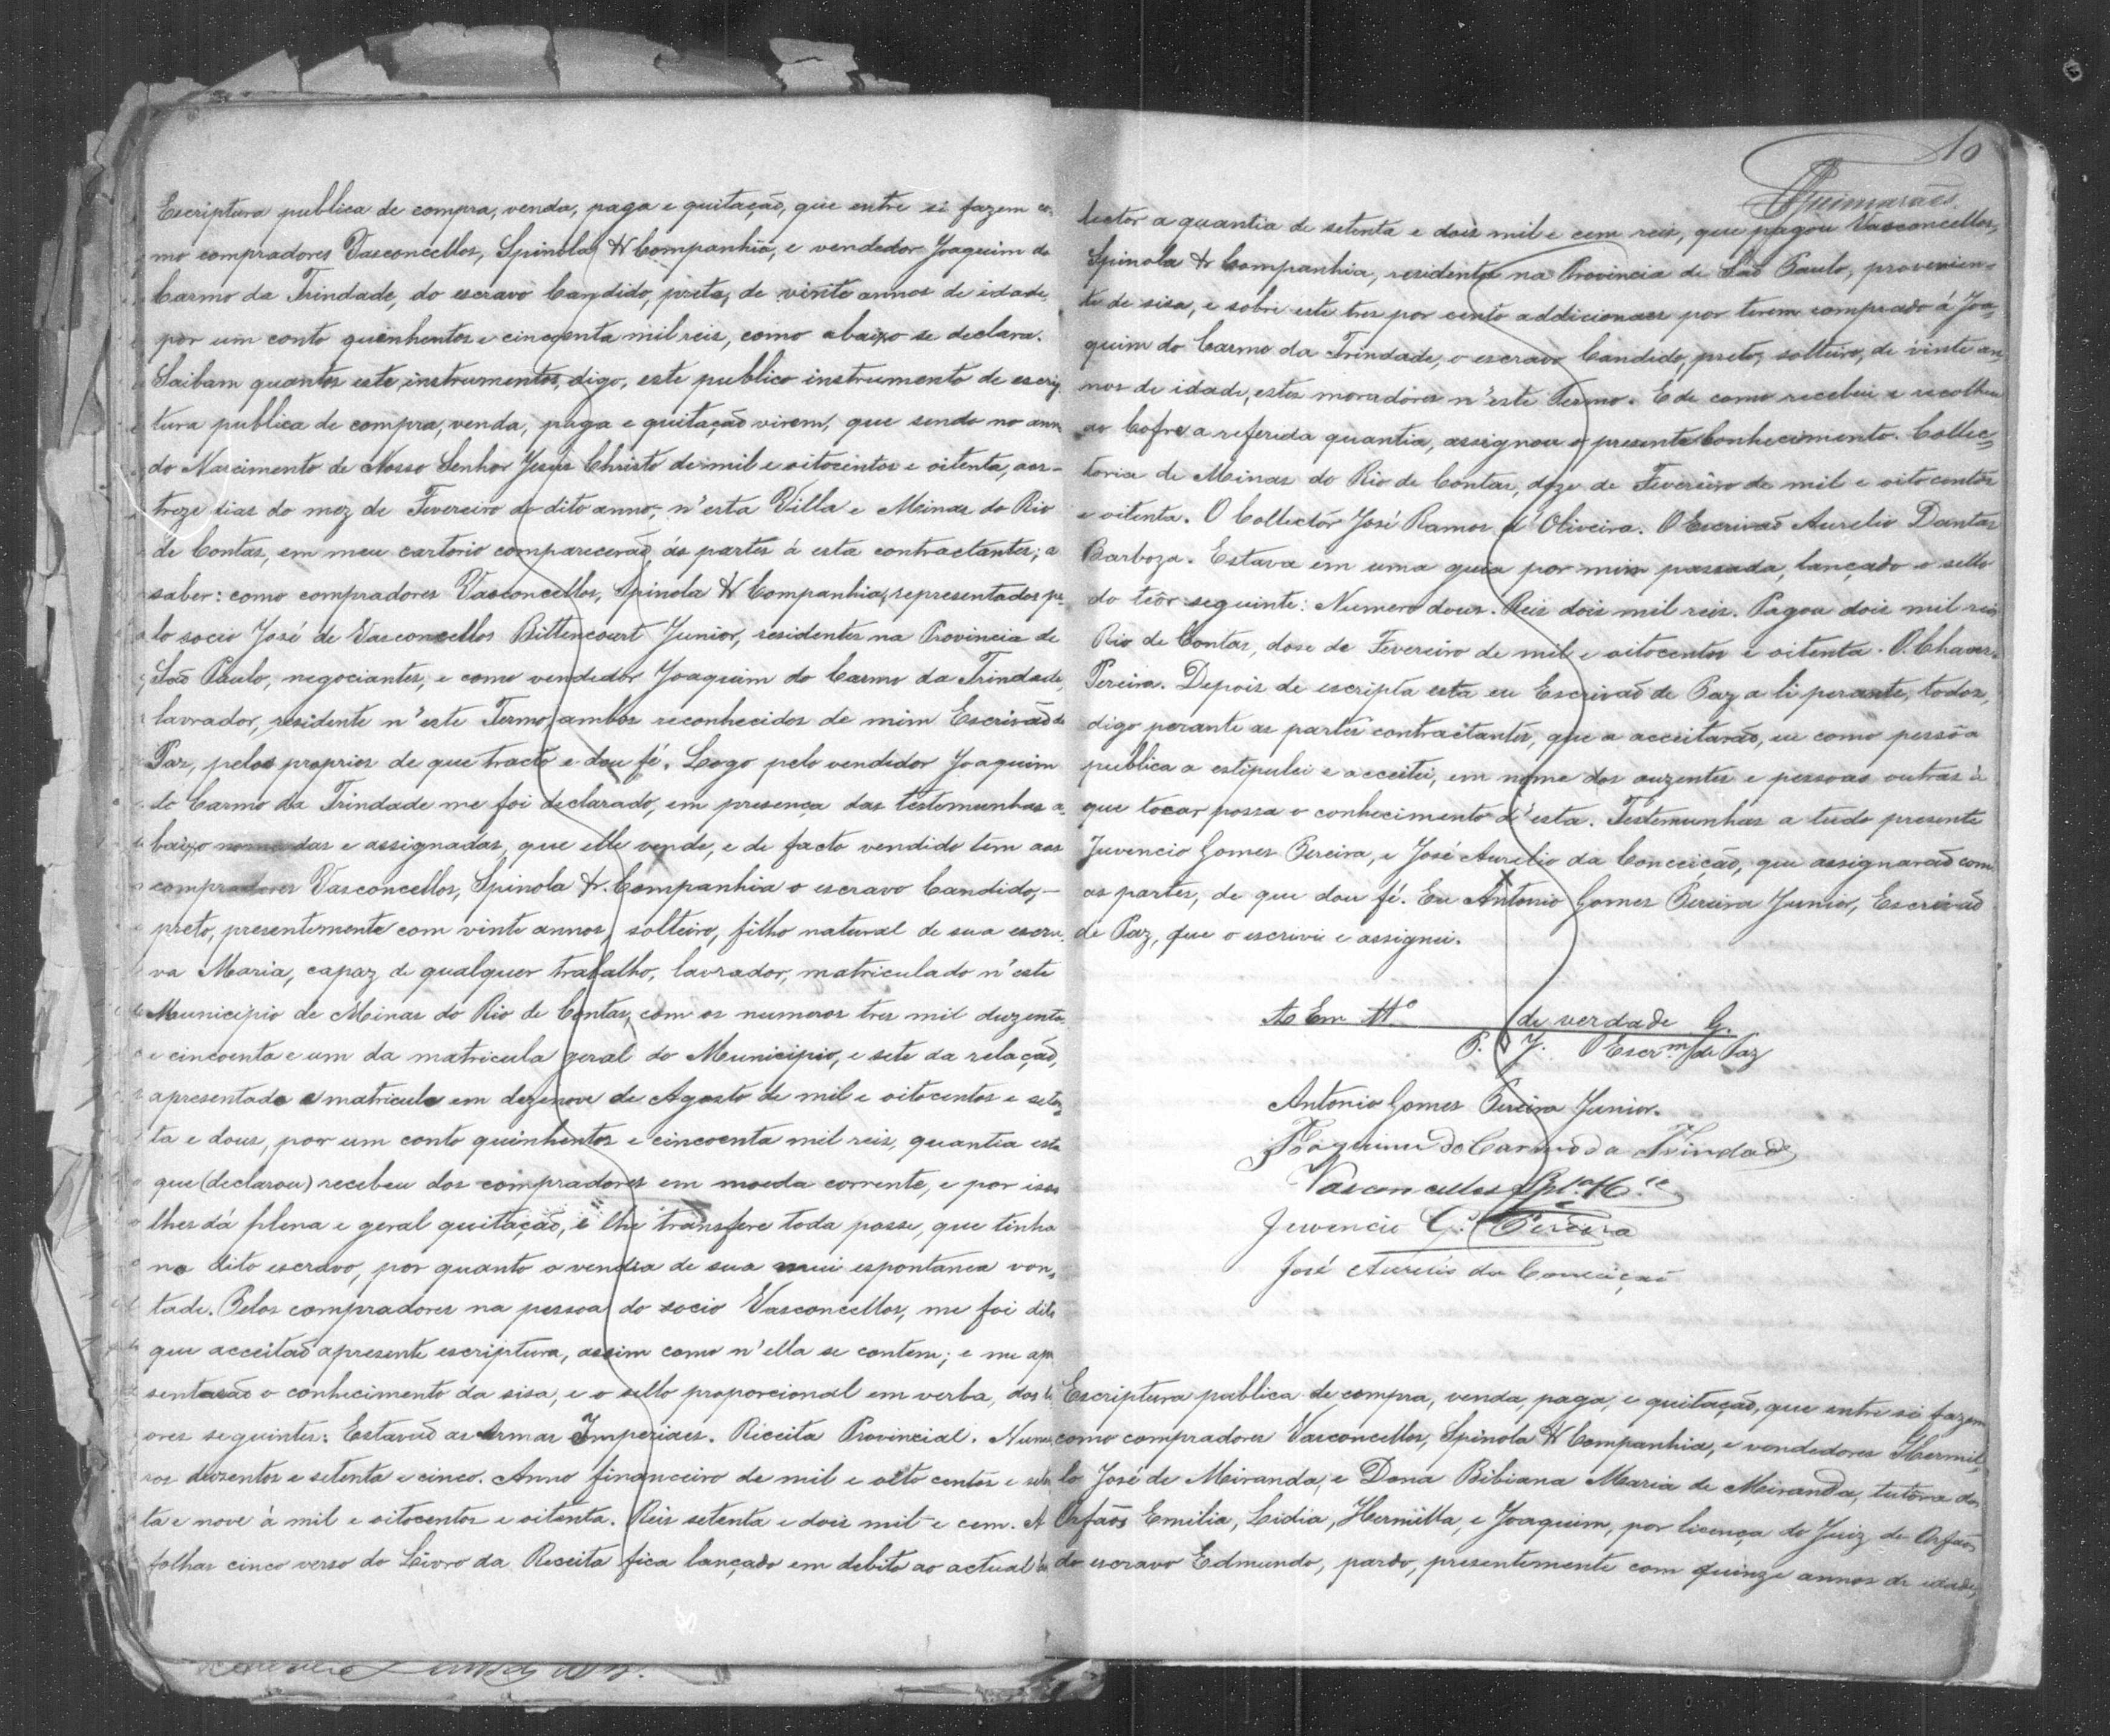 Escriptura publica de compra, venda, paga e quitação, que entre si fazem co-
mo compradores Vasconcellos, Spinola & Companhia, e vendedor Joaquim do
Carmo da Trindade, do escravo Candido, preto, de vinte annos de idade,
por um conto quenhentos e cincoenta mil reis, como abaixo se declara.
Saibam quantos este instrumentos, digo, este publico instrumento de escrip-
tura publica de compra, venda, paga e quitação virem, que sendo no anno
do Nascimento de Nosso Senhor Jesus Christo de mil e oitocentos e oitenta, aos-
treze dias do mez de Fevereiro do dito anno, n'esta Villa e Minas do Rio
de Contas, em meu cartorio comparecerão as partes á esta contractantes; a
saber: como compradores Vasconcellos, Spinola & Companhia, representados pe-
lo socio José de Vasconcellos Bittencourt Junior, residentes na Provincia de
São Paulo, negociantes, e como vendedor Joaquim do Carmo da Trindade,
lavrador, residente n'este Termo, ambos reconhecidos de mim Escrivão de
Paz, pelos proprios de que tracto e dou fé. Logo pelo vendedor Joaquim
do Carmo da Trindade me foi declarado, em presença das testemunhas a-
baixo nomeadas e assignadas, que elle vende, e de facto vendido tem aos
compradores Vasconcellos, Spinola & Companhia o escravo Candido,-
preto, presentemente com vinte annos, solteiro, filho natural de sua escra-
va Maria, capaz de qualquer trabalho, lavrador, matriculado n'este
Municipio de Minas do Rio de Contas, com os numeros tres mil duzentos
e cincoenta e um da matricula geral do Municipio, e sete da relação,
apresentada a matricula em dezenove de Agosto de mil e oitocentos e seten-
ta e dous, por um conto quinhentos e cincoenta mil reis, quantia esta
que (declarou) recebeu dos compradores em moeda corrente, e por isso
lhes dá plena e geral quitação, e lhe transfere toda posse, que tinha
no dito escravo, por quanto o vendia de sua mui espontanea von-
tade. Pelos compradores na pessoa do socio Vasconcellos, me foi dito
que acceitão apresente escriptura, assim como n'ella se contem; e me apre
sentarão o conhecimento da sisa, e o sello proporcional em verba, dos te
ores seguintes: Estavão as Armas Imperiaes. Receita Provincial. Nume
ros duzentos e setenta e cinco. Anno financeiro de mil e oito centos e seten
ta e nove á mil e oitocentos e oitenta. Reis setenta e dois mil e cem. A
folhas cinco verso do Livro da Receita fica lançado em debito ao actual Col
10
Guimarães
lector a quantia de setenta e dois mil e cem reis, que pagou Vasconcellos,
Spinola & Companhia, residente na Provincia de São Paulo, provenien-
te de sisa, e sobre este tres por cento addicionaes por terem comprado á Joa-
quim do Carmo da Trindade, o escravo Candido, preto, solteiro, de vinte an-
nos de idade, estes moradores n'este Termo. E de como recebeu e recolheu
ao Cofre a referida quantia, assignou o presente Conhecimento. Collec-
toria de Minas do Rio de Contas, doze de Fevereiro de mil e oitocentos
e oitenta. O Collector José Ramos d'Oliveira. O Escrivão Aurelio Dantas
Barboza. Estava em uma guia por mim passada, lançado o sello
do teôr seguinte: Numero dous. Reis dois mil reis. Pagou dois mil reis
Rio de Contas, dose de Fevereiro de mil e oitocentos e oitenta. O. Chaves.
Pereira. Depois de escripta esta eu Escrivão de Paz a li perante, todos,
digo perante as partes contractantes, que a acceitarão, eu como pessôa
publica a estipulei e acceitei, em nome dos auzentes e pessoas outras á
que tocar possa o conhecimento d'esta. Testemunhas a tudo presente
Juvencio Gomes Pereira, e José Aurelio da Conceição, que assignarão com
as partes, de que dou fé. Eu Antonio Gomes Pereira Junior, Escrivão
de Paz, que o escrivi e assignei.
Em de verdade
O Escr.m de Paz
Antonio Gomes Pereira Junior.
Joaquim do Carmo da Trindade
Vasconcellos Spl.a & C.ia
Juvencio G. Pereira
José Aurelio da Conceição
Escriptura publica de compra, venda, paga, e quitação, que entre si fazem
como compradores Vasconcellos, Spinola & Companhia, e vendedores Hermil-
lo José de Miranda, e Dona Bibiana Maria de Miranda, tutôra dos
Orfãos Emilia, Lidia, Hermilla, e Joaquim, por licença do Juiz de Orfãos
do escravo Edmundo, pardo, presentemente com quinze annos de idade,